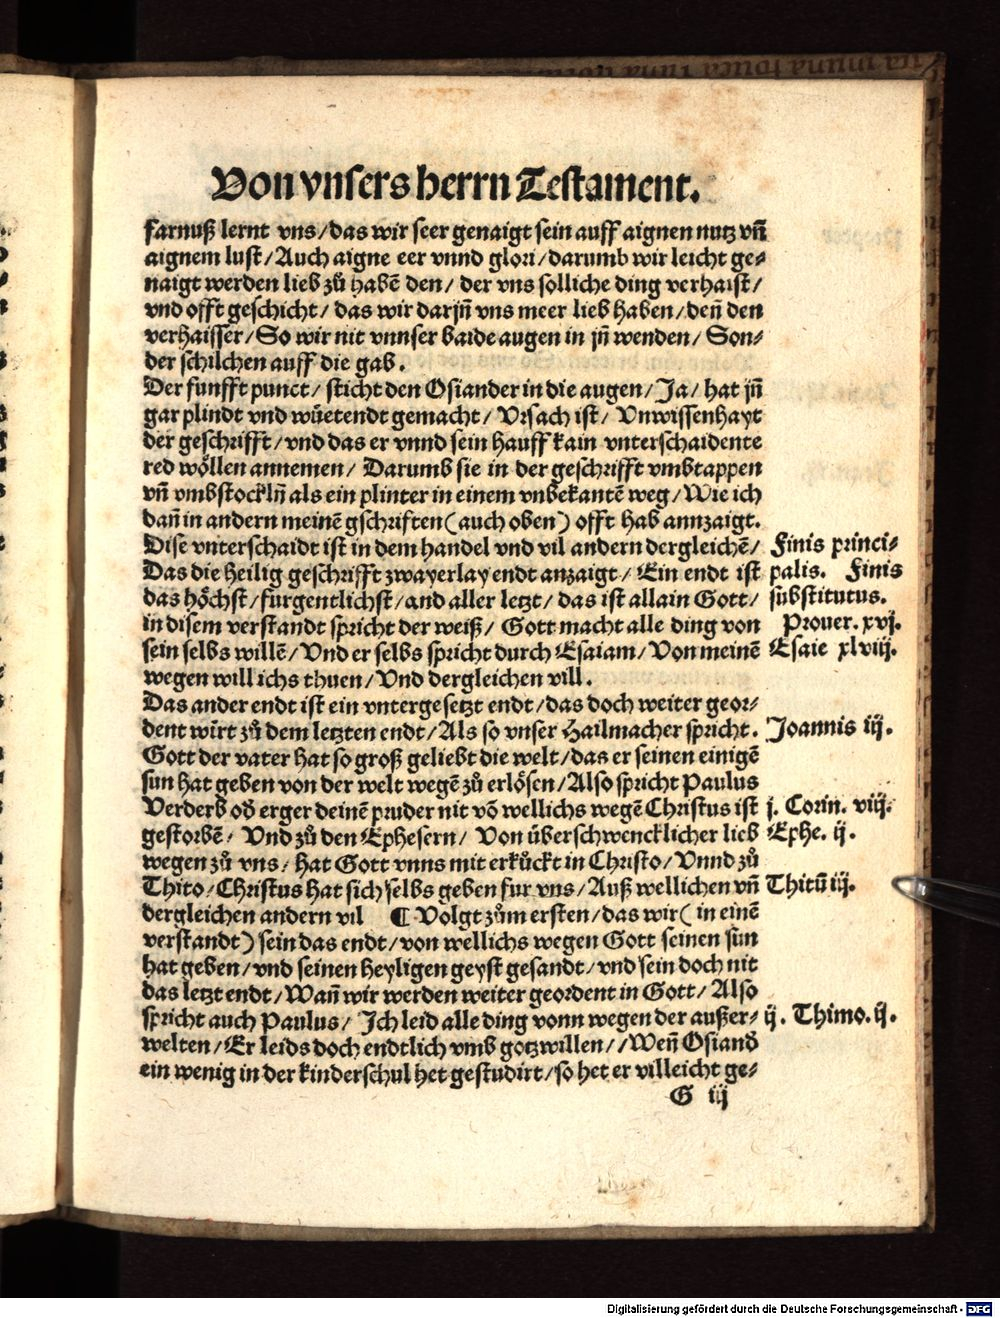 Von vnsers herrn Testament.
farnuß lernt vns/das wir seer genaigt sein auff aignen nutz vñ
aignem lust/Auch aigne eer vnnd glori/darumb wir leicht ge⸗
naigt werden lieb zů habẽ den/ der vns solliche ding verhaist/
vnd offt geschicht/ das wir darjñ vns meer lieb haben/deñ den
verhaisser/So wir nit vnnser baide augen in jñ wenden/ Son⸗
der schilchen auff die gab.
Der funfft punct/ sticht den Osiander in die augen/ Ja/ hat jñ
gar plindt vnd wůetendt gemacht/ Vrsach ist/ Vnwissenhayt
der geschrifft/vnd das er vnnd sein hauff kain vnterschaidente
red wöllen annemen/ Darumb sie in der geschrifft vmbtappen
vñ vmbstocklñ als ein plinter in einem vnbekantẽ weg/Wie ich
dañ in andern meinẽ gschriften(auch oben) offt hab annzaigt.
Dise vnterschaidt ist in dem handel vnd vil andern dergleichẽ/ Finis princi⸗
Das die heilig geschrifft zwayerlay endt anzaigt/ Ein endt ist palis. Finis
das höchst/furgentlichst/and aller letzt/das ist allain Gott/ substitutus.
in disem verstandt spricht der weiß/ Gott macht alle ding von Prouer. xvj.
sein selbs willẽ/Vnd er selbs spricht durch Esaiam/Von meinẽ Esaie xlviij.
wegen will ichs thuen/Vnd dergleichen vill.
Das ander endt ist ein vntergesetzt endt/das doch weiter geor⸗
dent wirt zů dem letzten endt/Als so vnser Hailmacher spricht. Joannis iij.
Gott der vater hat so groß geliebt die welt/das er seinen einigẽ
sun hat geben von der welt wegẽ zů erlösen/Also spricht Paulus
Verderb od̄ erger deinẽ pruder nit võ wellichs wegẽ Christus ist j. Corin. viij.
gestorbẽ/ Vnd zů den Ephesern/ Von überschwencklicher lieb Ephe. ij.
wegen zů vns/hat Gott vnns mit erkůckt in Christo/Vnnd zů
Thito/Christus hat sich selbs geben fur vns/Auß wellichen vñ Thitũ iij.
dergleichen andern vil ¶ Volgt zům ersten/das wir(in einẽ
verstandt) sein das endt/von wellichs wegen Gott seinen sun
hat geben/vnd seinen heyligen geyst gesandt/vnd sein doch nit
das letzt endt/Wañ wir werden weiter geordent in Gott/Also
spricht auch Paulus/ Ich leid alle ding vonn wegen der außer⸗ ij. Thimo. ij.
welten/Er leids doch endtlich vmb gotzwillen//Weñ Osiand̄
ein wenig in der kinderschul het gestudirt/so het er villeicht ge⸗
G iij
Digitalisierung gefördert durch die Deutsche Forschungsgemeinschaft - DFG